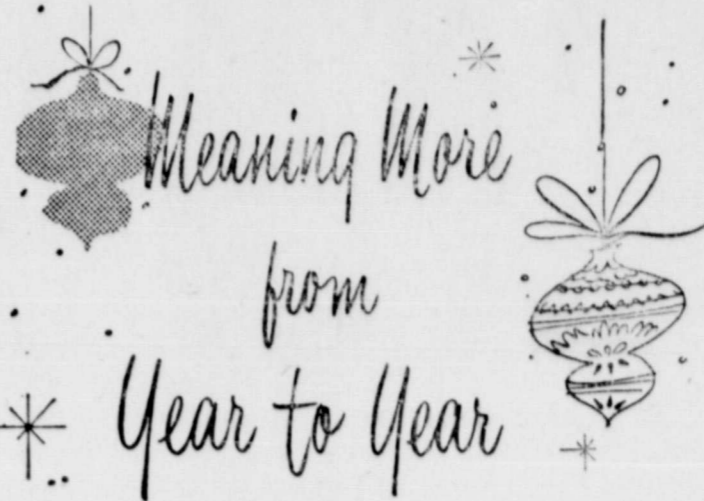 Meaning More
from
Year to Year